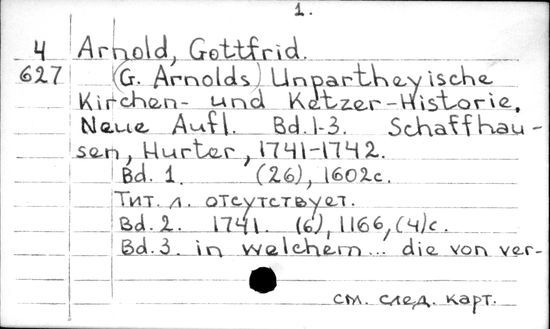 1.
4 Arnold, Gottfrid.
627 (G. Arnolds) Unpartheyische
Kirchen- und Ketzer-Historie.
Neue Aufl. Bd. 1-3. Schaffhau-
sen, Hurter, 1741-1742.
Bd. 1. (26), 1602c.
Тит. л. отсутствует.
Bd. 2. 1741. (6), 1166, (4)c.
Bd. 3. in welchem... die von ver-
см. след. карт.